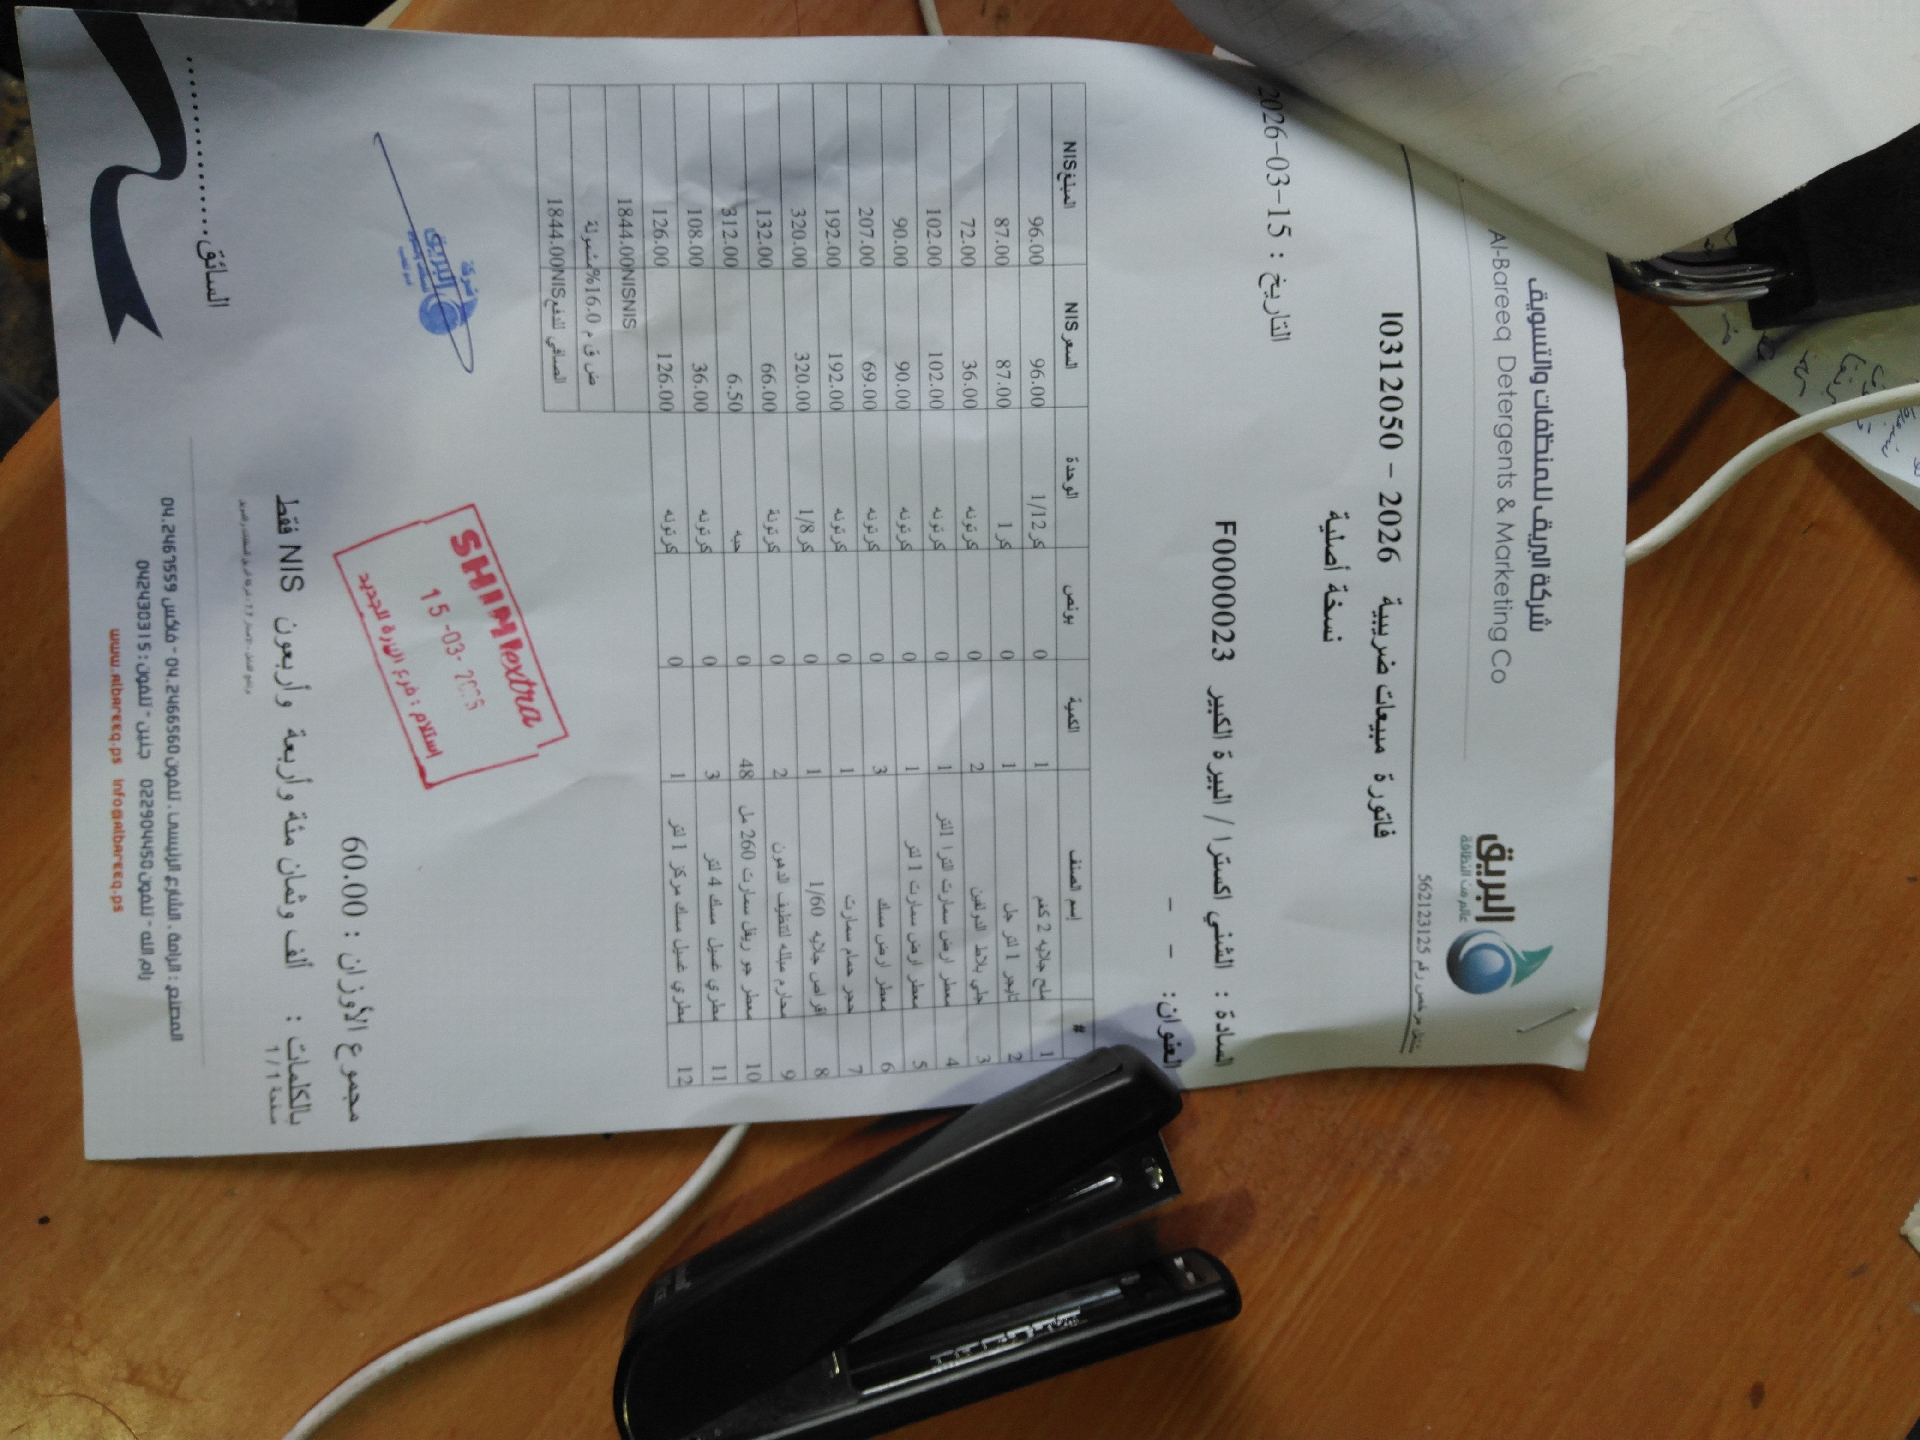 شركة البريق للمنظفات والتسويق
Al-Bareeq Detergents & Marketing Co
البريق
عالم من النظافة
مشتغل مرخص رقم 562123125
فاتورة مبيعات ضريبية 2026 - I0312050
نسخة أصلية
التاريخ : 15-03-2026
السادة : الشني اكسترا / البيرة الكبير F0000023
العنوان: - -
# إسم الصنف الكمية بونص الوحدة السعر NIS المبلغ NIS
1 ملح جلايه 2 كغم 1 0 كر 1/12 96.00 96.00
2 تايجر 1 لتر جل 1 0 كر 1 87.00 87.00
3 جلي بلاط الدولفين 2 0 كرتونه 36.00 72.00
4 معطر ارض سمارت الترا 1لتر 1 0 كرتونه 102.00 102.00
5 معطر ارض سمارت 1 لتر 1 0 كرتونه 90.00 90.00
6 معطر ارض مسك 3 0 كرتونه 69.00 207.00
7 حجر حمام سمارت 1 0 كرتونه 192.00 192.00
8 اقراص جلايه 1/60 1 0 كر 1/8 320.00 320.00
9 محارم مبلله لتنظيف الدهون 2 0 كرتونة 66.00 132.00
10 معطر جو ريفل سمارت 260 مل 48 0 حبه 6.50 312.00
11 مطري غسيل مسك 4 لتر 3 0 كرتونه 36.00 108.00
12 مطري غسيل مسك مركز 1 لتر 1 0 كرتونه 126.00 126.00
NISNIS 1844.00
ض ق م 16.0% مشمولة
الصافي للدفع NIS 1844.00
SHINIextra
15-03-2026
استلام : فرع البيرة الجديد
شركة
البريق
مجموع الأوزان : 60.00
بالكلمات : ألف وثمان مئة وأربعة وأربعون NIS فقط
صفحة 1 / 1
السائق
المصنع : الرامة . الشارع الرئيسي . تلفون 04.2466560 - فاكس 04.2467559
رام الله - تلفون 022904450 جنين - تلفون : 042430315
www.albareeq.ps info@albareeq.ps